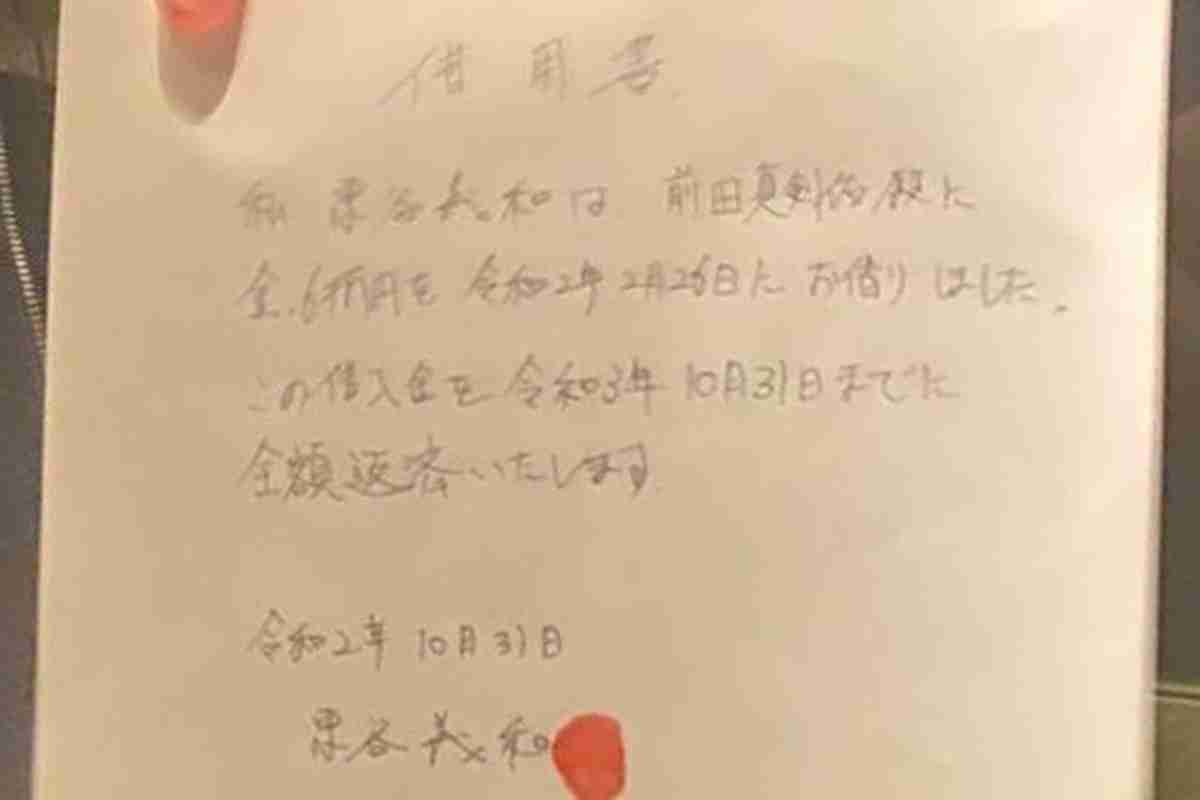 借用書
私 栗谷義和は 前田真剣佑殿に
金、6万円を 令和2年2月26日に お借りしました。
この借入金を 令和3年 10月31日までに
全額返済いたします。
令和2年 10月31日
栗谷義和